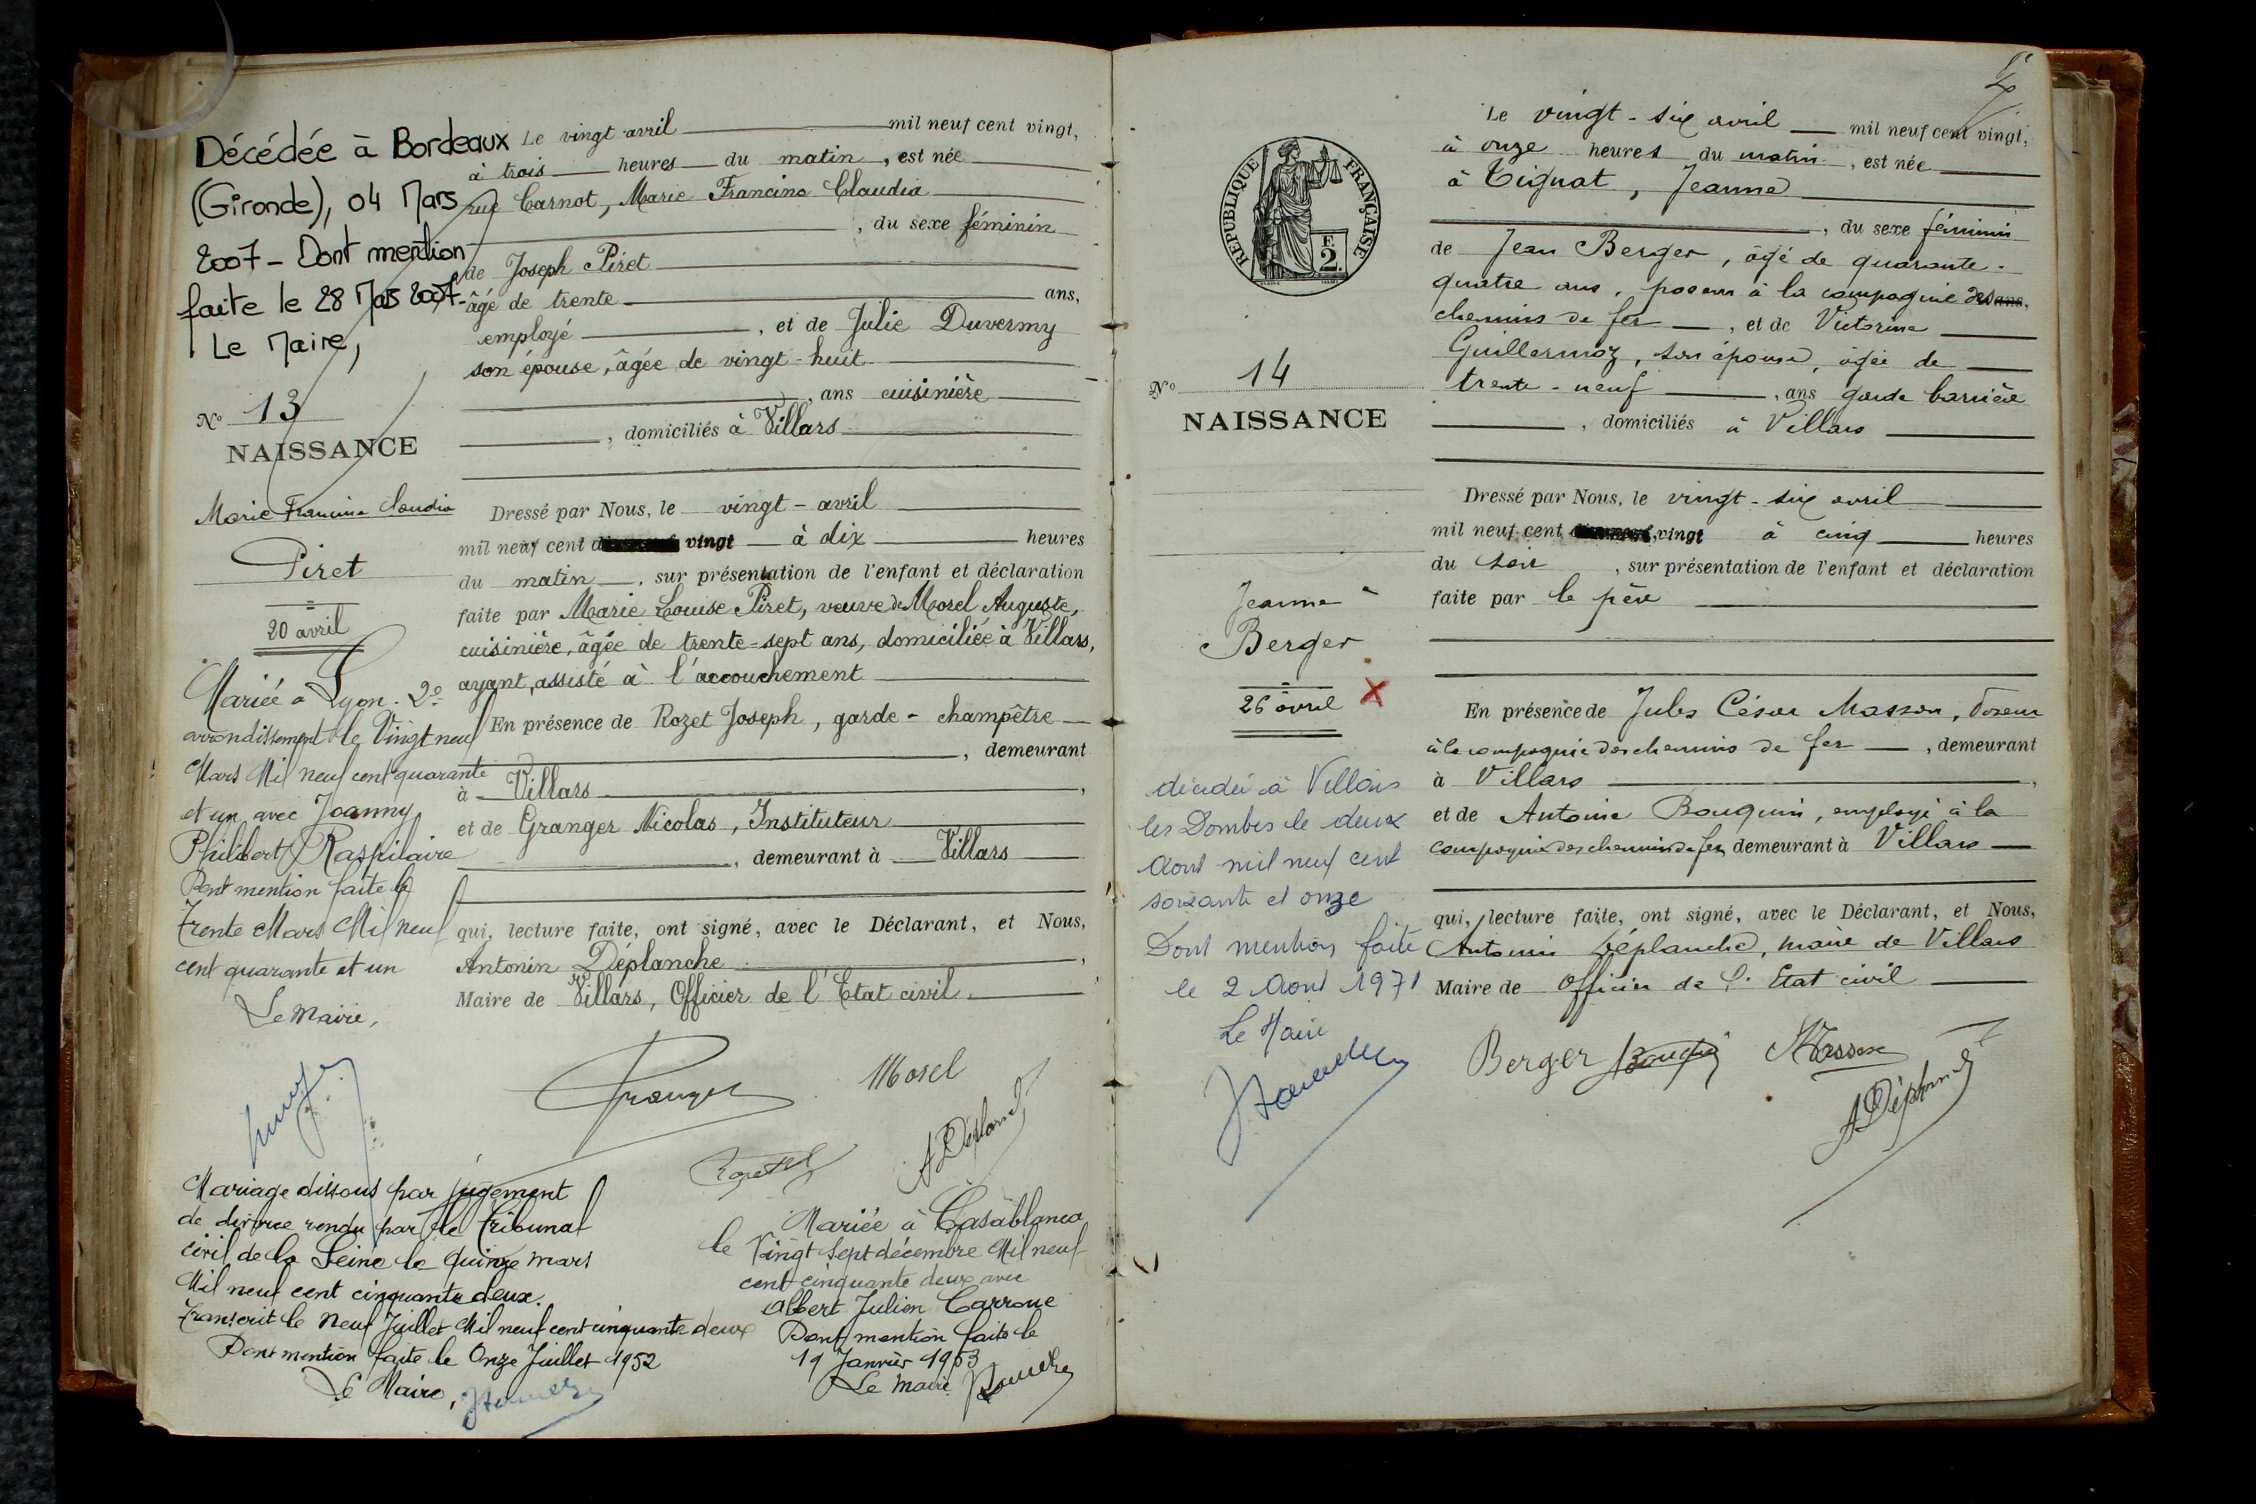 Décédée à Bordeaux
(Gironde), 04 Mars
2007 - Dont mention
faite le 28 Mars 2007.
Le Maire,
N° 13
NAISSANCE
Marie Francine Claudia
Piret
20 avril
Mariée à Lyon. 2e
arrondissement le Vingt neuf
Mars Mil neuf cent quarante
et un avec Joanny
Philibert Raspilaire
Dont mention faite le
Trente Mars Mil neuf
cent quarante et un
Le Maire,
Mariage dissous par jugement
de divorce rendu par le Tribunal
civil de la Seine le quinze mars
Mil neuf cent cinquante deux.
Transcrit le Neuf Juillet Mil neuf cent cinquante deux
Dont mention faite le Onze Juillet 1952
Le Maire,
Le vingt avril mil neuf cent vingt,
à trois heures du matin, est née
rue Carnot, Marie Francine Claudia
, du sexe féminin
de Joseph Piret
âgé de trente ans,
employé, et de Julie Duvermy
son épouse, âgée de vingt-huit
, ans cuisinière
, domiciliés à Villars
Dressé par Nous, le vingt-avril
mil neuf cent vingt à dix heures
du matin, sur présentation de l'enfant et déclaration
faite par Marie Louise Piret, veuve de Morel Auguste,
cuisinière, âgée de trente-sept ans, domiciliée à Villars,
ayant assisté à l'accouchement
En présence de Rozet Joseph, garde-champêtre
, demeurant
à Villars,
et de Granger Nicolas, Instituteur
, demeurant à Villars
qui, lecture faite, ont signé, avec le Déclarant, et Nous,
Antonin Déplanche,
Maire de Villars, Officier de l'Etat civil.
Granger
Morel
Rozet
A Déplanche
Mariée à Casablanca
le Vingt sept décembre Mil neuf
cent cinquante deux avec
Albert Julien Carroue
Dont mention faite le
19 Janvier 1953
Le Maire
RÉPUBLIQUE FRANÇAISE
F.
2.
N° 14
NAISSANCE
Jeanne
Berger
26 avril
décédée à Villars
les Dombes le deux
Aout mil neuf cent
soixante et onze
Dont mention faite
le 2 Aout 1971
Le Maire
Le vingt-six avril mil neuf cent vingt,
à onze heures du matin, est née
à Tignat, Jeanne
, du sexe féminin
de Jean Berger, âgé de quarante-
quatre ans, poseur à la compagnie des ans,
chemins de fer, et de Victorine
Guillermoz, son épouse, âgée de
trente-neuf, ans garde barrière
, domiciliés à Villars
Dressé par Nous, le vingt-six avril
mil neuf cent vingt à cinq heures
du soir, sur présentation de l'enfant et déclaration
faite par le père
En présence de Jules César Masson, Poseur
à la compagnie des chemins de fer, demeurant
à Villars,
et de Antoine Bouquin, employé à la
compagnie des chemins de fer, demeurant à Villars
qui, lecture faite, ont signé, avec le Déclarant, et Nous,
Antonin Déplanche, maire de Villars
Maire de Officier de l'Etat civil
Berger
Bouquin
Masson
A Déplanche